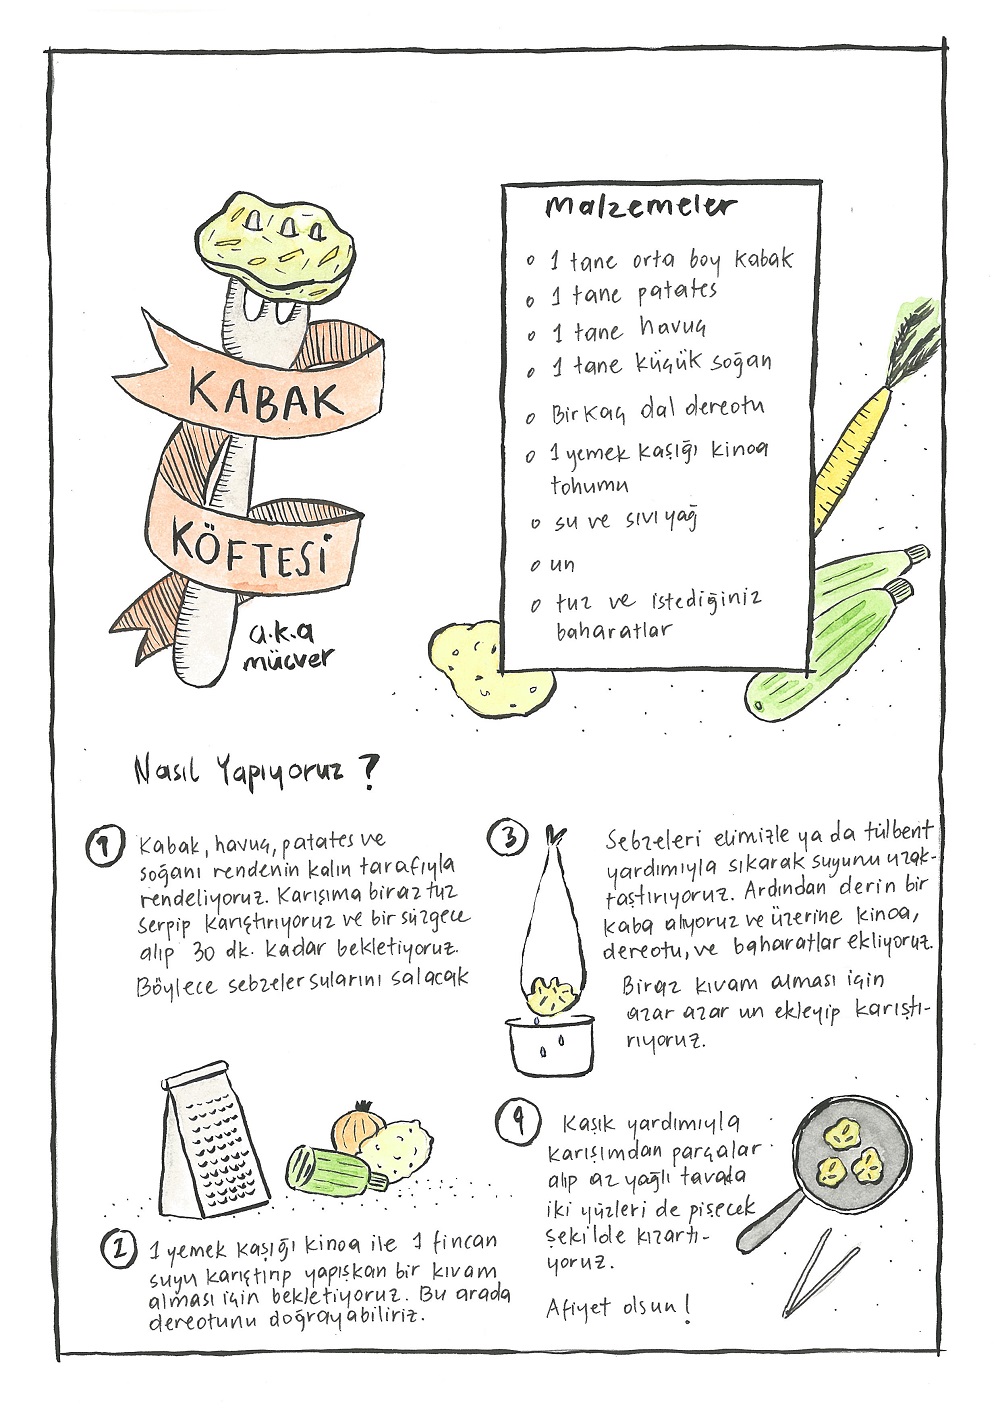 KABAK
KÖFTESİ
a.k.a
mücver
Malzemeler
1 tane orta boy kabak
1 tane patates
1 tane havuç
1 tane küçük soğan
Birkaç dal dereotu
1 yemek kaşığı kinoa
tohumu
su ve sıvı yağ
un
tuz ve istediğiniz
baharatlar
Nasıl Yapıyoruz ?
1
Kabak, havuç, patates ve
soğanı rendenin kalın tarafıyla
rendeliyoruz. Karışıma biraz tuz
serpip karıştırıyoruz ve bir süzgece
alıp 30 dk. kadar bekletiyoruz.
Böylece sebzeler sularını salacak
2
1 yemek kaşığı kinoa ile 1 fincan
suyu karıştırıp yapışkan bir kıvam
alması için bekletiyoruz. Bu arada
dereotunu doğrayabiliriz.
3
Sebzeleri elimizle ya da tülbent
yardımıyla sıkarak suyunu uzak-
taştırıyoruz. Ardından derin bir
kaba alıyoruz ve üzerine kinoa,
dereotu, ve baharatlar ekliyoruz.
Biraz kıvam alması için
azar azar un ekleyip karıştı-
rıyoruz.
4
Kaşık yardımıyla
karışımdan parçalar
alıp az yağlı tavada
iki yüzleri de pişecek
şekilde kızartı-
yoruz.
Afiyet olsun !